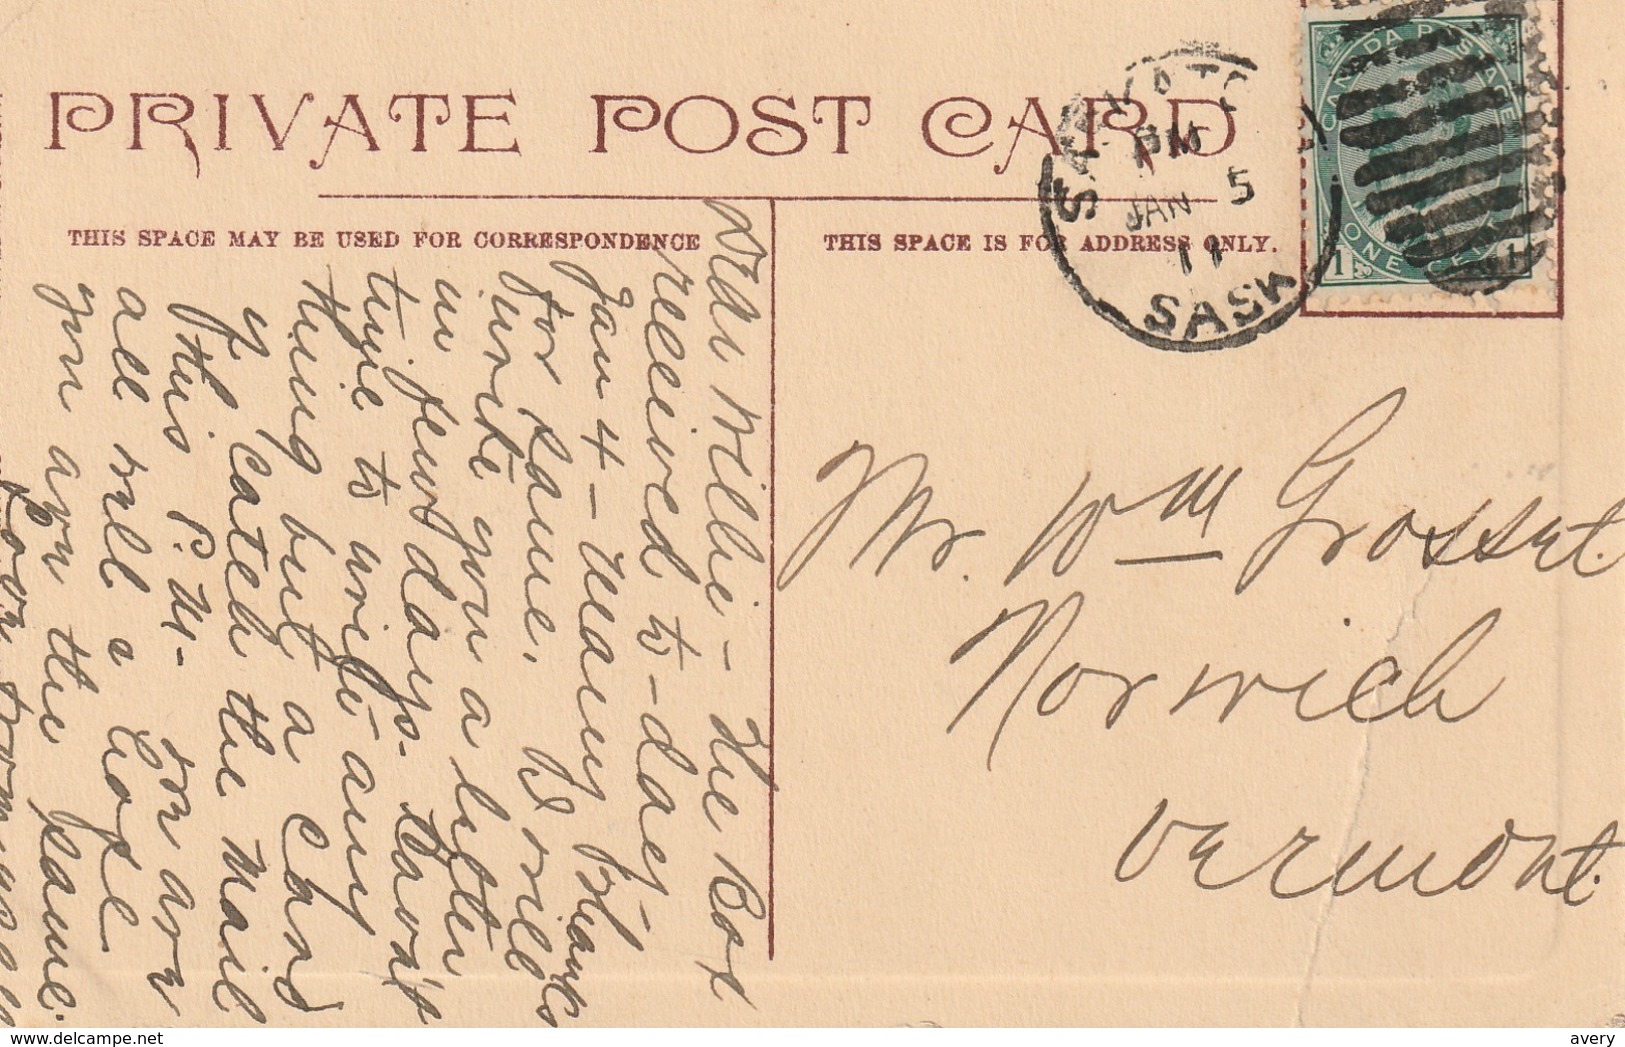 PRIVATE POST CARD
THIS SPACE MAY BE USED FOR CORRESPONDENCE
THIS SPACE IS FOR ADDRESS ONLY.
SASKATO
PM
JAN 5
11
SASK
CANADA POSTAGE
ONE CE
1 1
Dear Willie - The Box
received to-day -
Jan 4 - Many Thanks
for same. I will
write you a letter
in few days. Haven't
time to write any
thing but a card
if catch the mail
this P.M. - We are
all well & hope
you are the same.
Love from
Mr. Wm Grosset.
Norwich
Vermont.
delcampe.net
avery